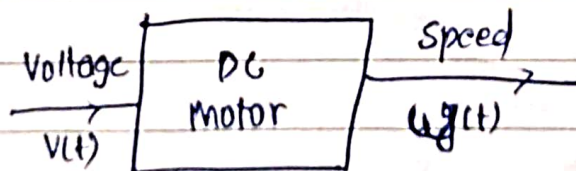 Voltage
V(t)
DC
Motor
Speed
(t)